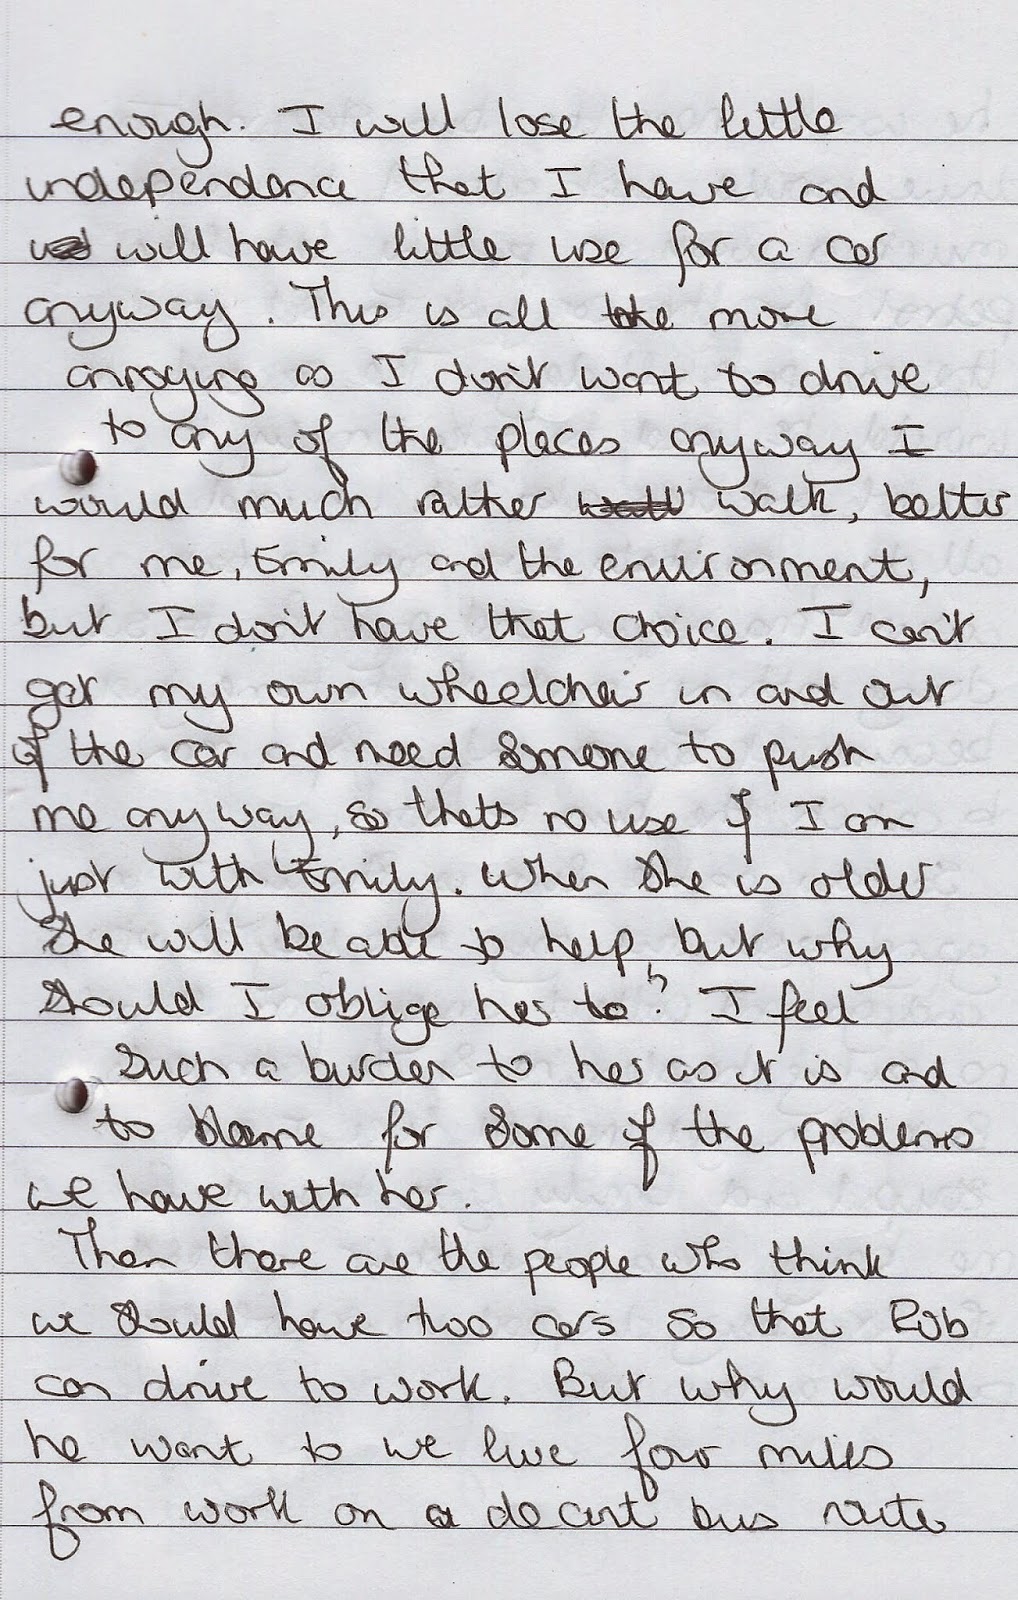 enough. I will lose the little
independance that I have and
will have little use for a car
anyway. This is all the more
annoying as I don't want to drive
to any of the places anyway I
would much rather walk, better
for me, Emily and the environment,
but I don't have that choice. I can't
get my own wheelchair in and out
of the car and need someone to push
me anyway, so thats no use if I am
just with Emily. When she is older
she will be able to help, but why
should I oblige her to? I feel
such a burden to her as it is and
to blame for some of the problems
we have with her.
Then there are the people who think
we should have two cars so that Rob
can drive to work. But why would
he want to we live four miles
from work on a decent bus route